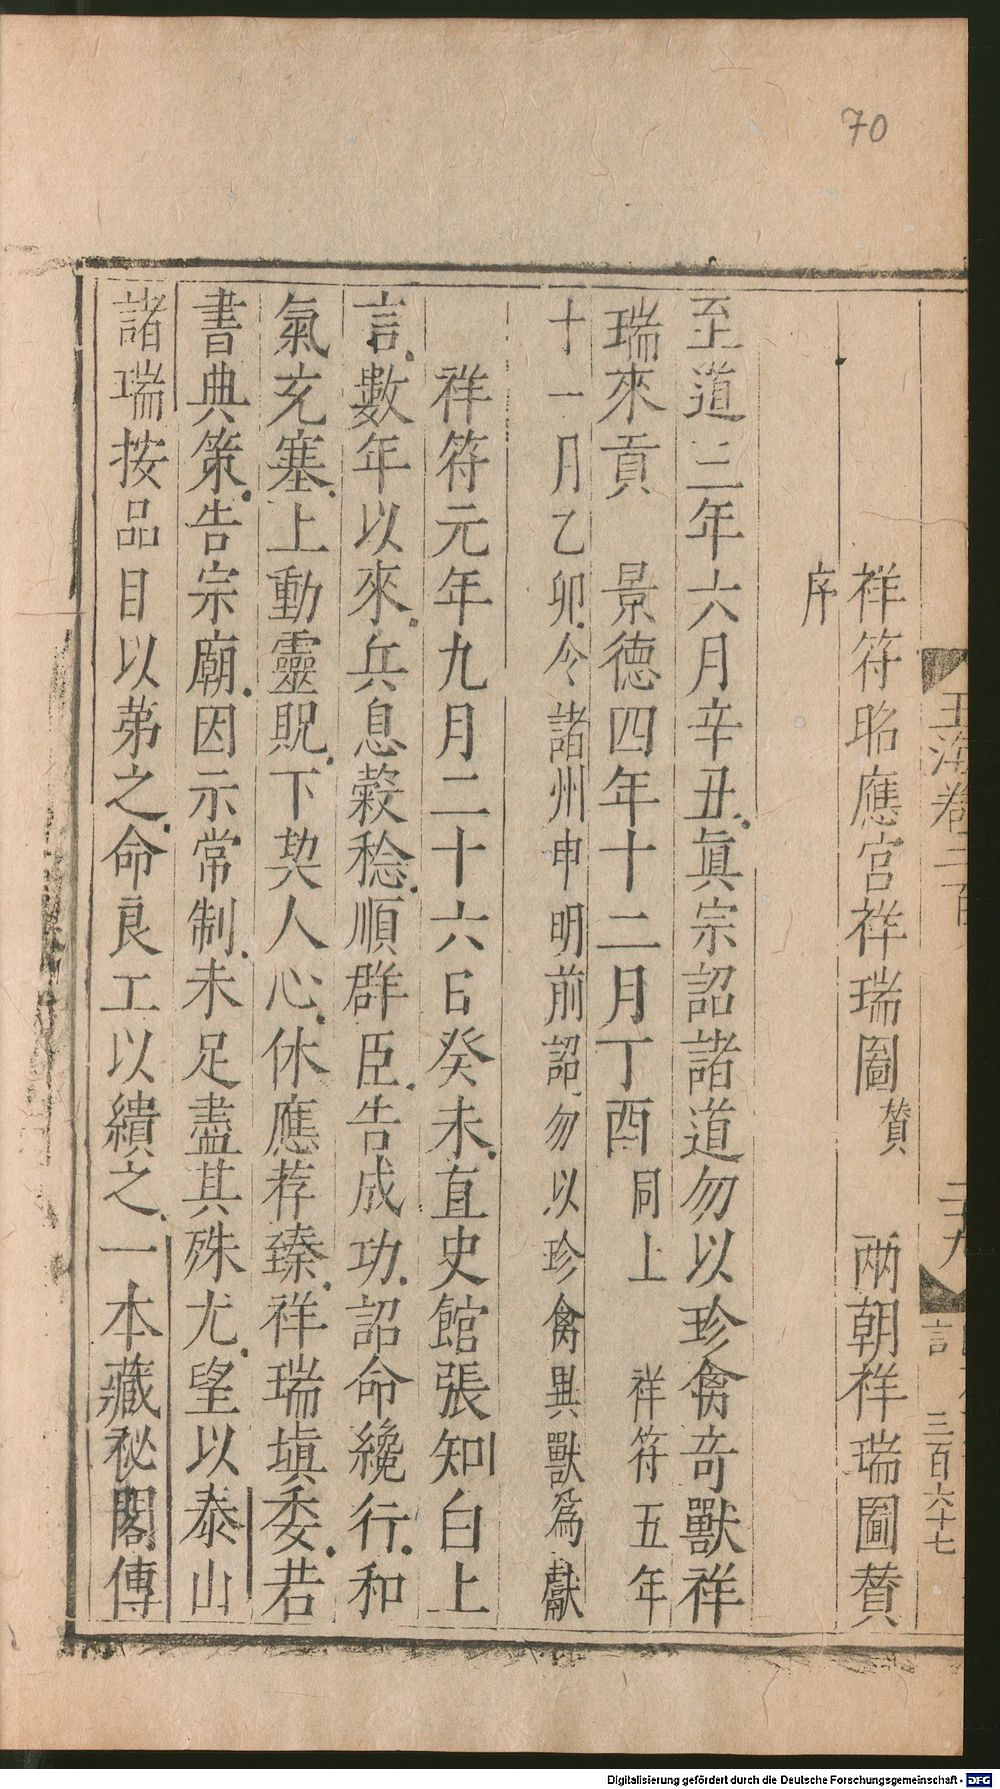 70
玉海卷二百 二十九 言 三百六十七
祥符昭應宮祥瑞圖贊 兩朝祥瑞圖贊
序
至道三年六月辛丑真宗詔諸道勿以珍禽竒獸祥
瑞來貢 景德四年十二月丁酉同上 祥符五年
十一月乙卯令諸州申明前詔勿以珍禽異獸為獻
祥符元年九月二十六日癸未直史館張知白上
言數年以來兵息穀稔順群臣告成功詔命纔行和
氣充塞上動靈貺下契人心休應荐臻祥瑞塡委若
書典策告宗廟因示常制未足盡其殊尤望以泰山
諸瑞按品目以第之命良工以繢之一本藏秘閣傳
Digitalisierung gefördert durch die Deutsche Forschungsgemeinschaft - DFG